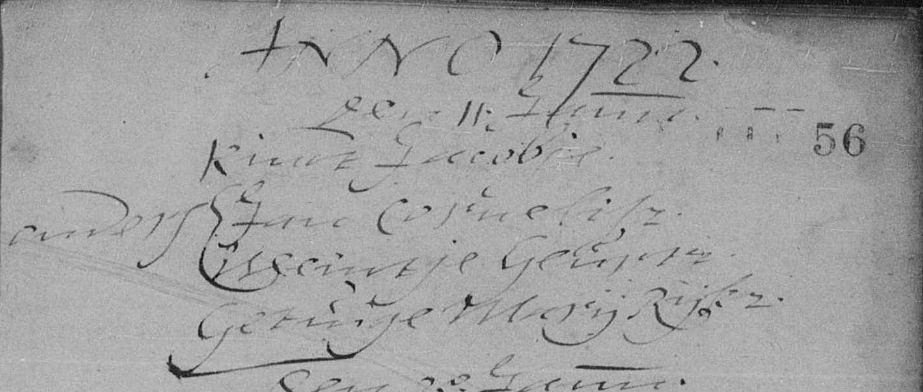 ANNO 1722.
den 11. Janua.
56
Kint Jacobje.
ouders Jan Cornelisz.
Weintje Geurts.
Getuige Marij Rijks.
den Janu.